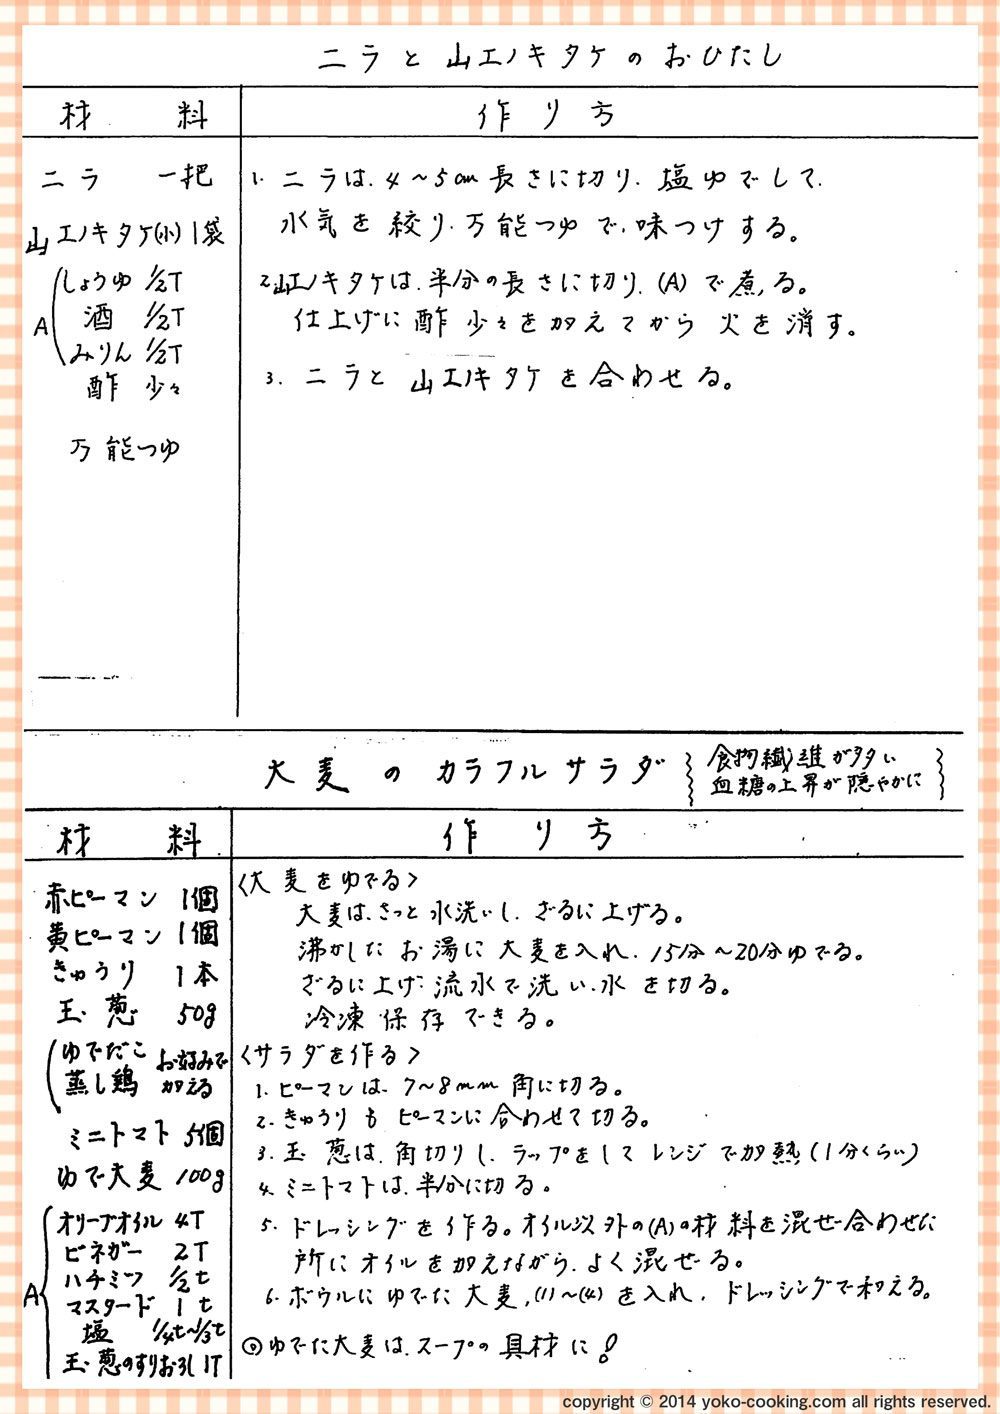 ニラと山エノキタケのおひたし
材　料
作り方
ニラ　一把
山エノキタケ(小) 1袋
A
しょうゆ 1/2T
酒 1/2T
みりん 1/2T
酢 少々
万能つゆ
1. ニラは、4～5cm長さに切り、塩ゆでして、
水気を絞り、万能つゆで、味つけする。
2. 山エノキタケは、半分の長さに切り、(A)で煮る。
仕上げに酢少々を加えてから火を消す。
3. ニラと山エノキタケを合わせる。
大麦のカラフルサラダ
食物繊維が多い
血糖の上昇が穏やかに
材　料
作り方
赤ピーマン 1個
黄ピーマン 1個
きゅうり 1本
玉葱 50g
ゆでだこ
蒸し鶏
お好みで
加える
ミニトマト 5個
ゆで大麦 100g
A
オリーブオイル 4T
ビネガー 2T
ハチミツ 1/2t
マスタード 1t
塩 1/4t~1/3t
玉葱のすりおろし 1T
<大麦をゆでる>
大麦は、さっと水洗いし、ざるに上げる。
沸かしたお湯に大麦を入れ、15分～20分ゆでる。
ざるに上げ、流水で洗い、水を切る。
冷凍保存できる。
<サラダを作る>
1. ピーマンは、7～8mm角に切る。
2. きゅうりもピーマンに合わせて切る。
3. 玉葱は、角切りし、ラップをしてレンジで加熱(1分くらい)
4. ミニトマトは、半分に切る。
5. ドレッシングを作る。オイル以外の(A)の材料を混ぜ合わせた
所にオイルを加えながら、よく混ぜる。
6. ボウルにゆでた大麦,(1)～(4)を入れ、ドレッシングで和える。
◎ゆでた大麦は、スープの具材に!
copyright © 2014 yoko-cooking.com all rights reserved.